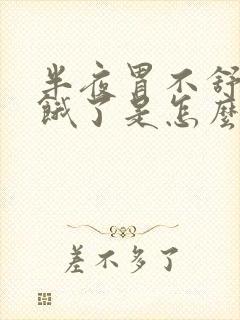 半夜胃不舒
饿了是怎麽
差不多了